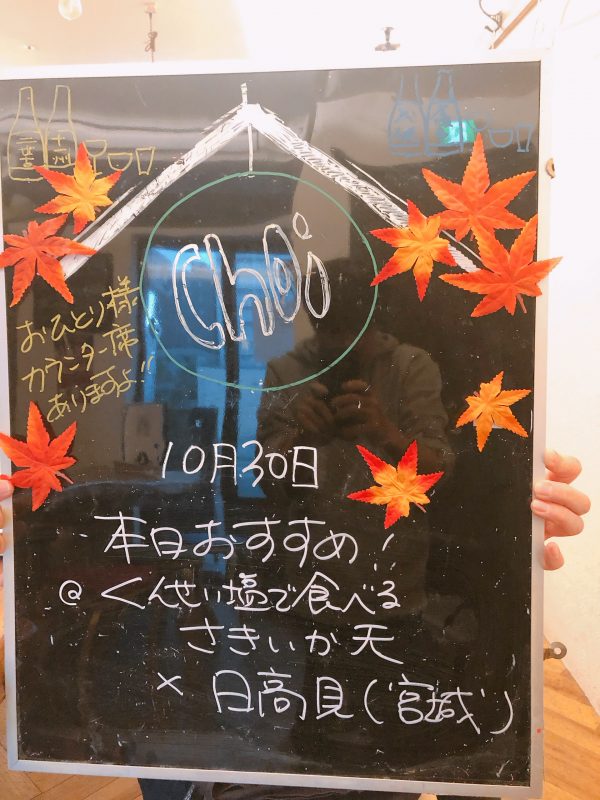 Choi
おひとり様
カウンター席
ありますよ!!
10月30日
本日おすすめ!!
@くんせい塩で食べる
さきいか天
× 日高見(宮城)